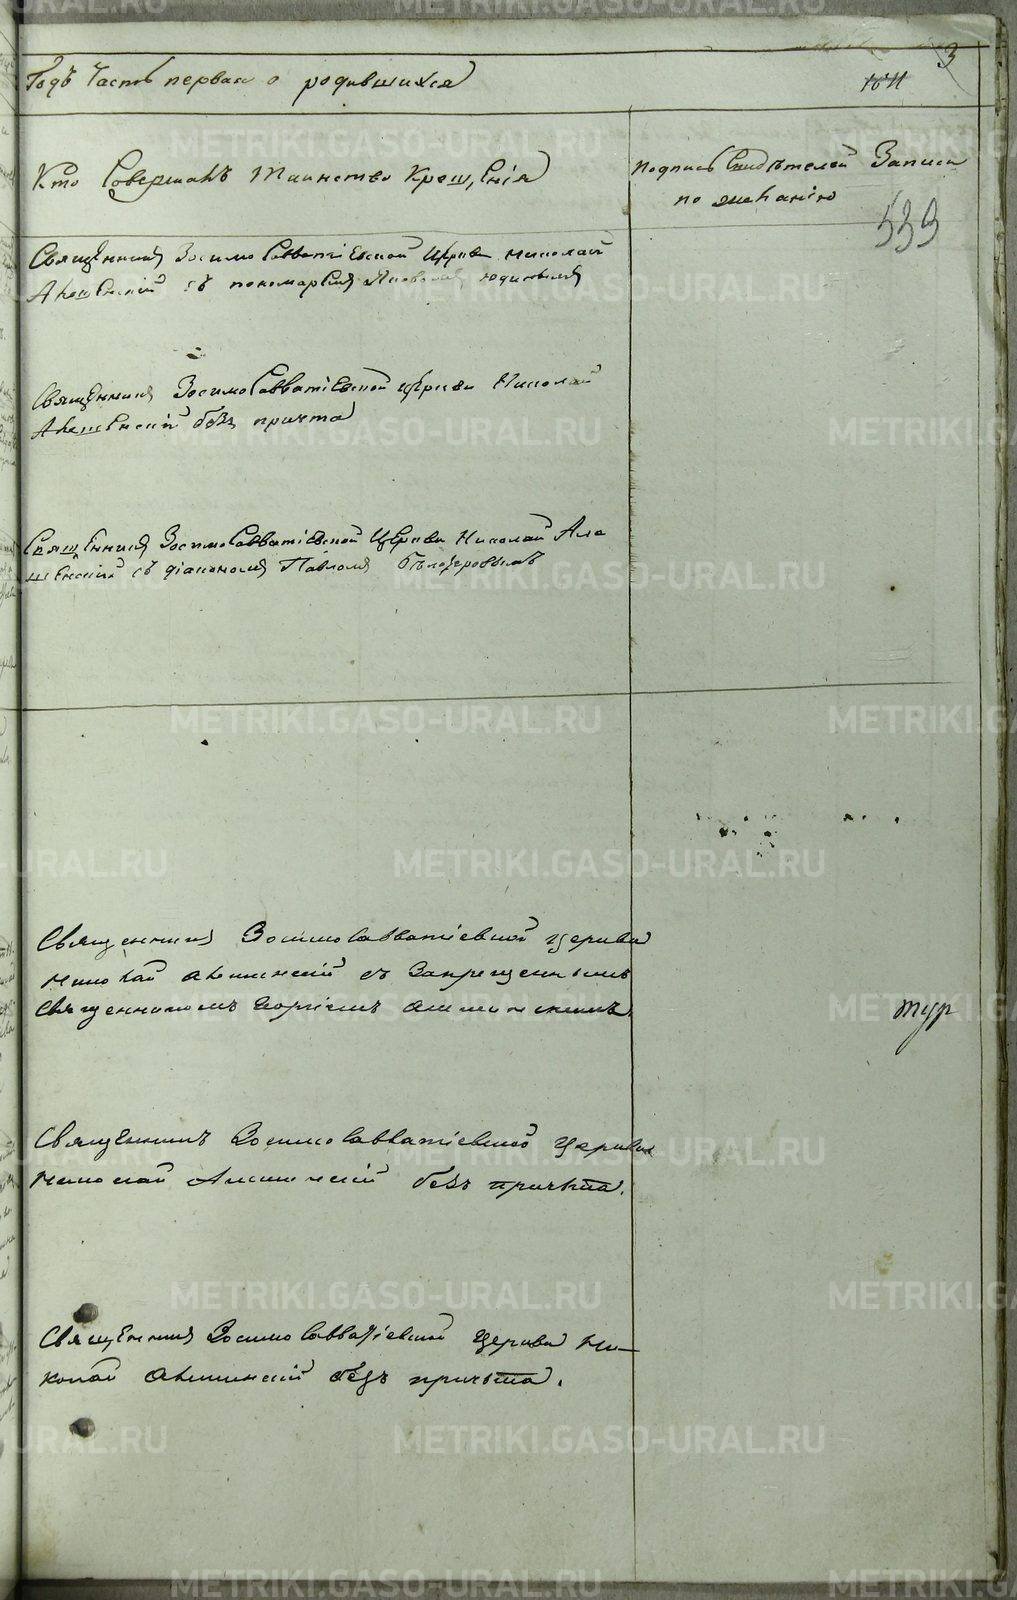 3
Годъ Часть первая о родившихся
Кто Совершалъ Таинство Крещенія
Подпись Свидѣтелей Записи
по желанію
539
Священникъ Зосимо Савватіевской Церкви Николай
Алешенскій съ пономаремъ
Священникъ Зосимо Савватіевской Церкви Николай
Алешенскій безъ причта
Священникъ Зосимо Савватіевской Церкви Николай Але
шенскій съ діакономъ Павломъ Бѣлозеровымъ
Священникъ Зосимо Савватіевской Церкви
Николай Алешинскій съ Запрещеннымъ
Священникомъ Георгіемъ Алешинскимъ
тур
Священникъ Зосимо Савватіевской Церкви
Николай Алешинскій безъ причьта.
Священникъ Зосимо Савватіевской Церкви Ни-
колай Алешинскій безъ причьта.
METRIKI.GASO-URAL.RU